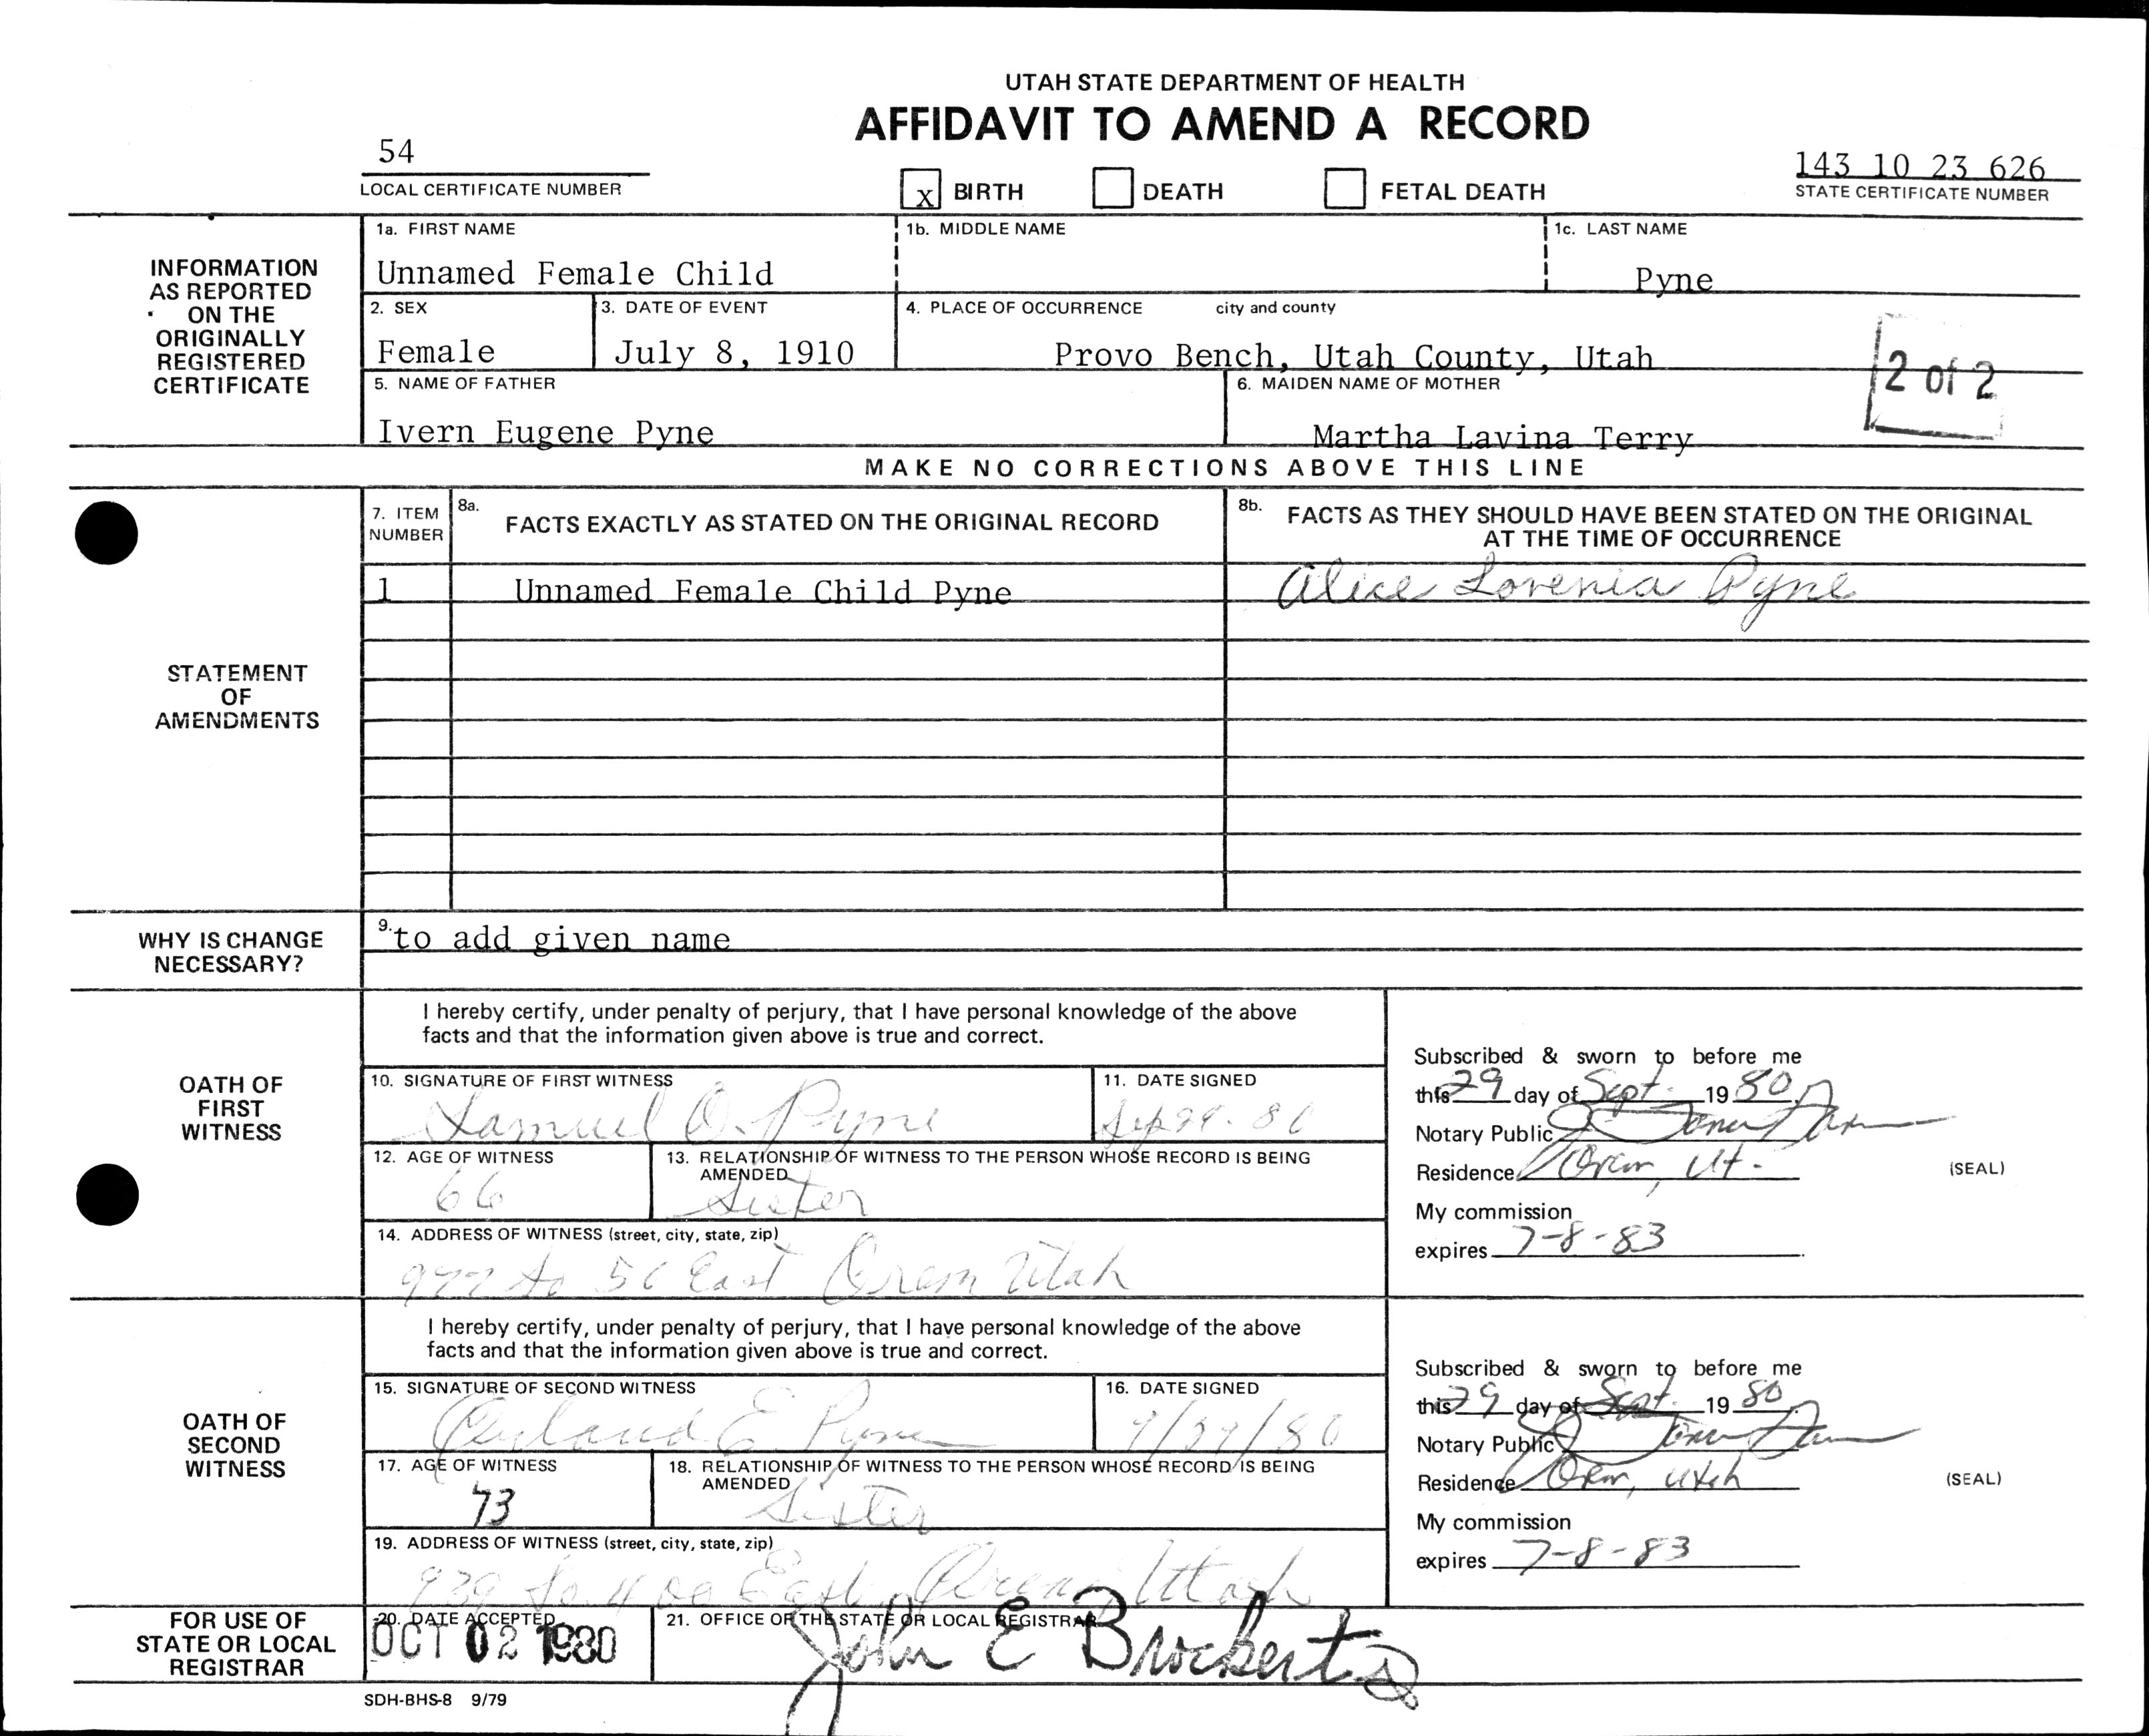 UTAH STATE DEPARTMENT OF HEALTH
AFFIDAVIT TO AMEND A RECORD
54
LOCAL CERTIFICATE NUMBER
x BIRTH DEATH FETAL DEATH
143 10 23 626
STATE CERTIFICATE NUMBER
INFORMATION
AS REPORTED
ON THE
ORIGINALLY
REGISTERED
CERTIFICATE
1a. FIRST NAME
Unnamed Female Child
1b. MIDDLE NAME
1c. LAST NAME
Pyne
2. SEX
Female
3. DATE OF EVENT
July 8, 1910
4. PLACE OF OCCURRENCE city and county
Provo Bench, Utah County, Utah
2 of 2
5. NAME OF FATHER
Ivern Eugene Pyne
6. MAIDEN NAME OF MOTHER
Martha Lavina Terry
MAKE NO CORRECTIONS ABOVE THIS LINE
STATEMENT
OF
AMENDMENTS
7. ITEM
NUMBER
8a. FACTS EXACTLY AS STATED ON THE ORIGINAL RECORD
8b. FACTS AS THEY SHOULD HAVE BEEN STATED ON THE ORIGINAL
AT THE TIME OF OCCURRENCE
1 Unnamed Female Child Pyne
Alice Lovenia Pyne
WHY IS CHANGE
NECESSARY?
9. to add given name
OATH OF
FIRST
WITNESS
I hereby certify, under penalty of perjury, that I have personal knowledge of the above
facts and that the information given above is true and correct.
10. SIGNATURE OF FIRST WITNESS
Samuel O. Pyne
11. DATE SIGNED
12. AGE OF WITNESS
66
13. RELATIONSHIP OF WITNESS TO THE PERSON WHOSE RECORD IS BEING
AMENDED
Sister
14. ADDRESS OF WITNESS (street, city, state, zip)
East Orem Utah
Subscribed & sworn to before me
this 29 day of Sept. 19 80
Notary Public
Residence Orem, Ut.
(SEAL)
My commission
expires 7-8-83
OATH OF
SECOND
WITNESS
I hereby certify, under penalty of perjury, that I have personal knowledge of the above
facts and that the information given above is true and correct.
15. SIGNATURE OF SECOND WITNESS
E Pyne
16. DATE SIGNED
9/29/80
17. AGE OF WITNESS
73
18. RELATIONSHIP OF WITNESS TO THE PERSON WHOSE RECORD IS BEING
AMENDED
Sister
19. ADDRESS OF WITNESS (street, city, state, zip)
939 So 400 East Orem Utah
Subscribed & sworn to before me
this 29 day of Sept. 19 80
Notary Public
Residence Orem, Utah
(SEAL)
My commission
expires 7-8-83
FOR USE OF
STATE OR LOCAL
REGISTRAR
20. DATE ACCEPTED
OCT 02 1980
21. OFFICE OF THE STATE OR LOCAL REGISTRAR
John E Brockert
SDH-BHS-8 9/79